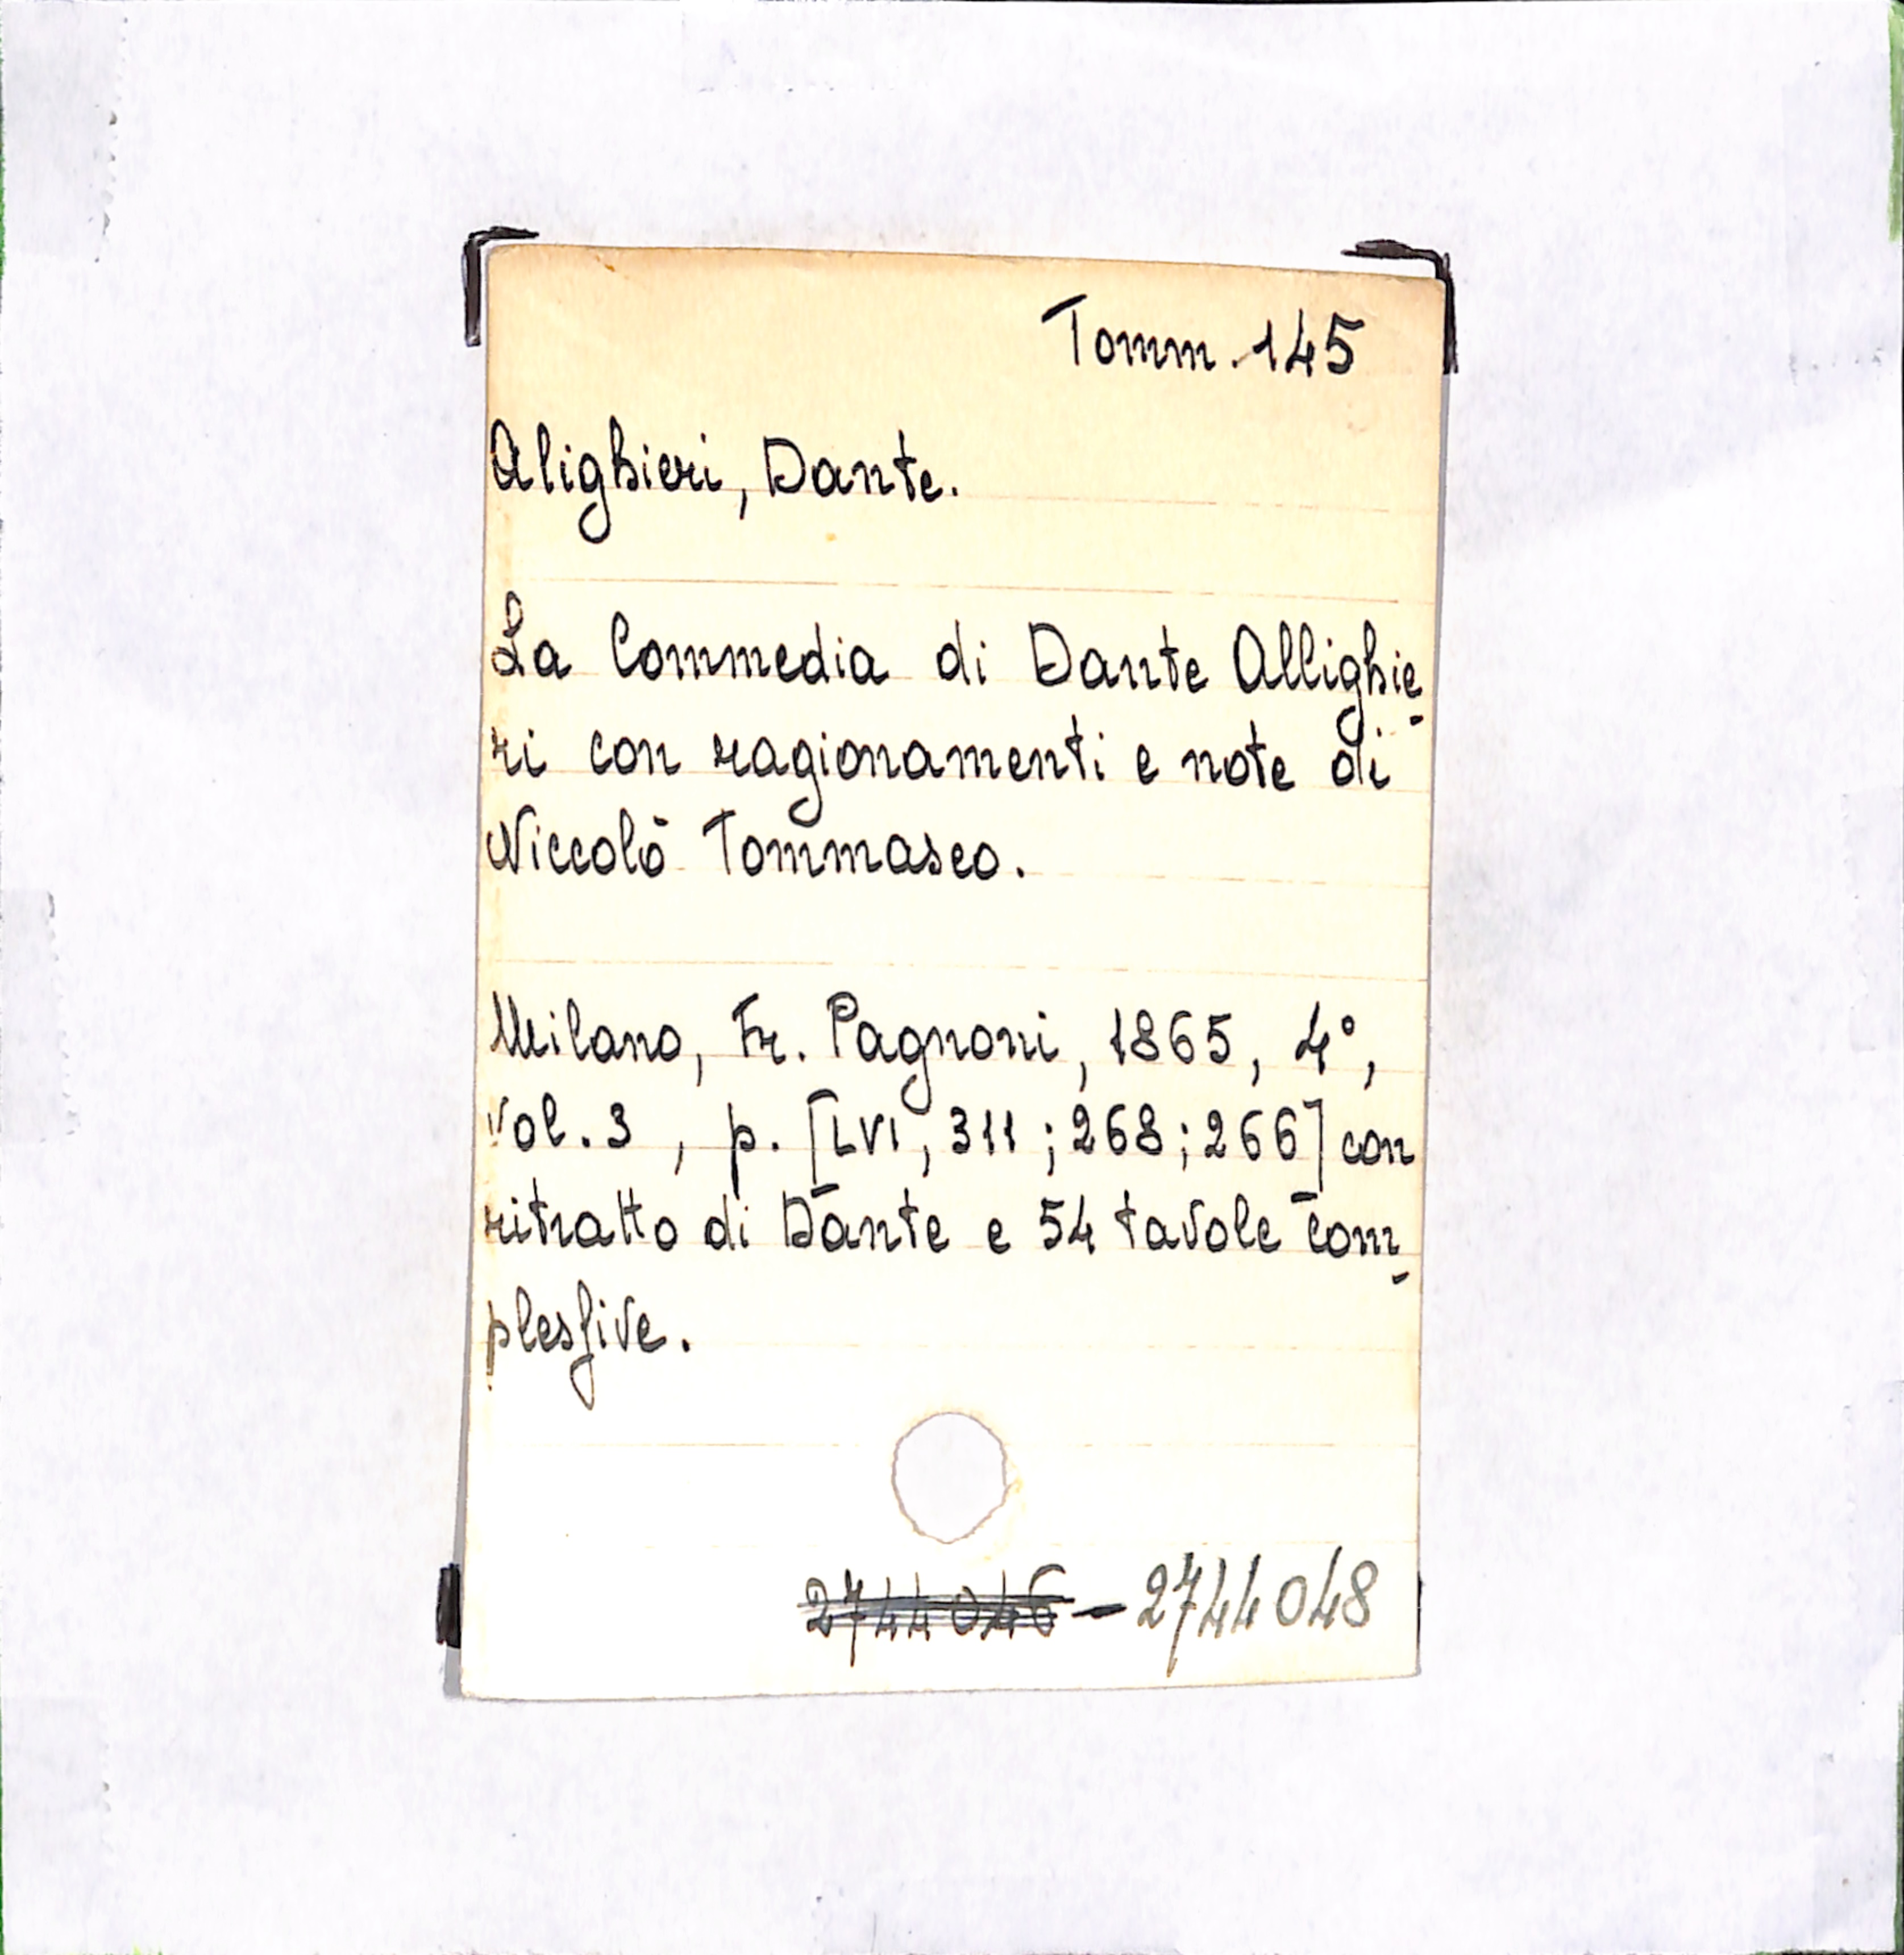 Tomm. 145
Alighieri, Dante.
La Commedia di Dante Allighie-
ri con ragionamenti e note di
Niccolò Tommaseo.
Milano, Fr. Pagnoni, 1865, 4°,
vol. 3, p. [LVI, 311; 268; 266] con
ritratto di Dante e 54 tavole com-
plesſive.
2744046 - 2744048